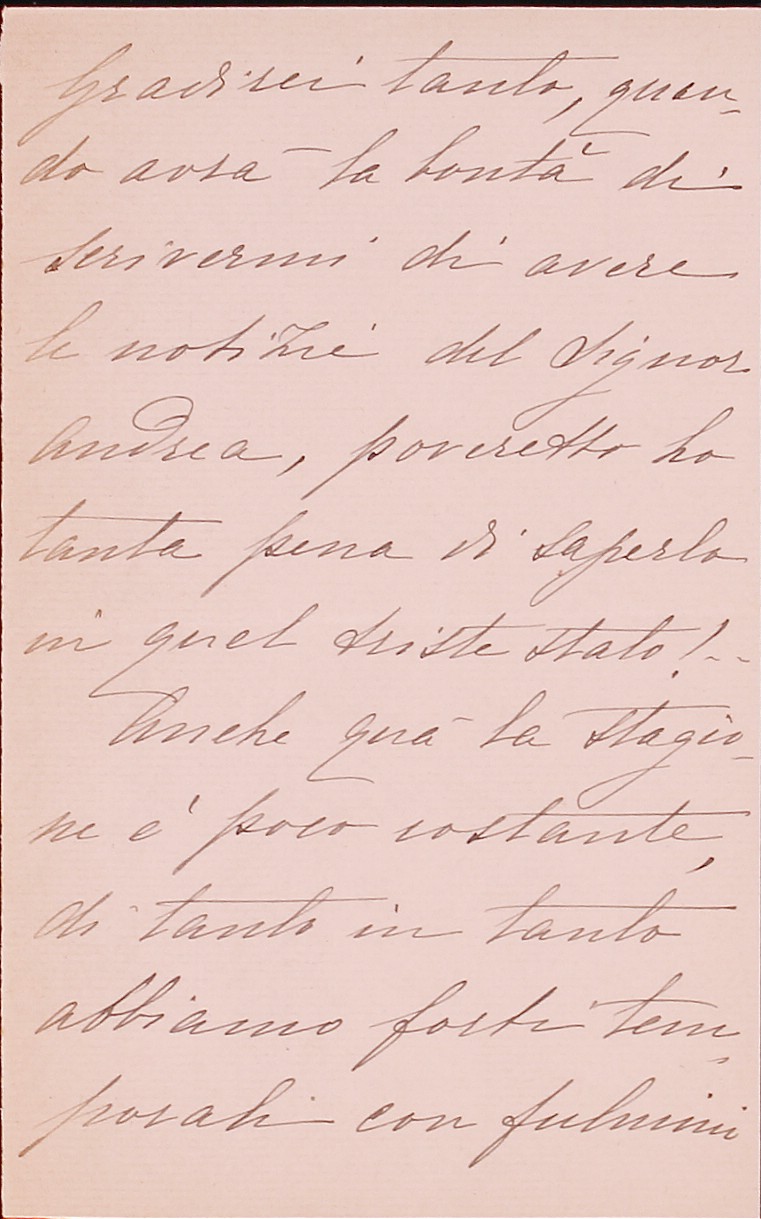 Gradirei tanto, quan-
do avrà la bontà di
scrivermi di avere
le notizie del Signor
Andrea, poveretto ho
tanta pena di saperlo
in quel triste stato!--
Anche quà la stagio-
ne è poco costante,
di tanto in tanto
abbiamo forti tem-
porali con fulmini